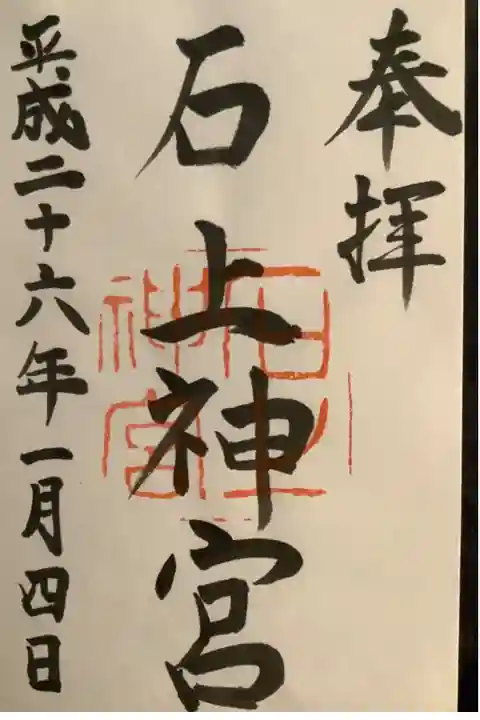 奉拝
石上神宮
平成二十六年一月四日
石上
神宮